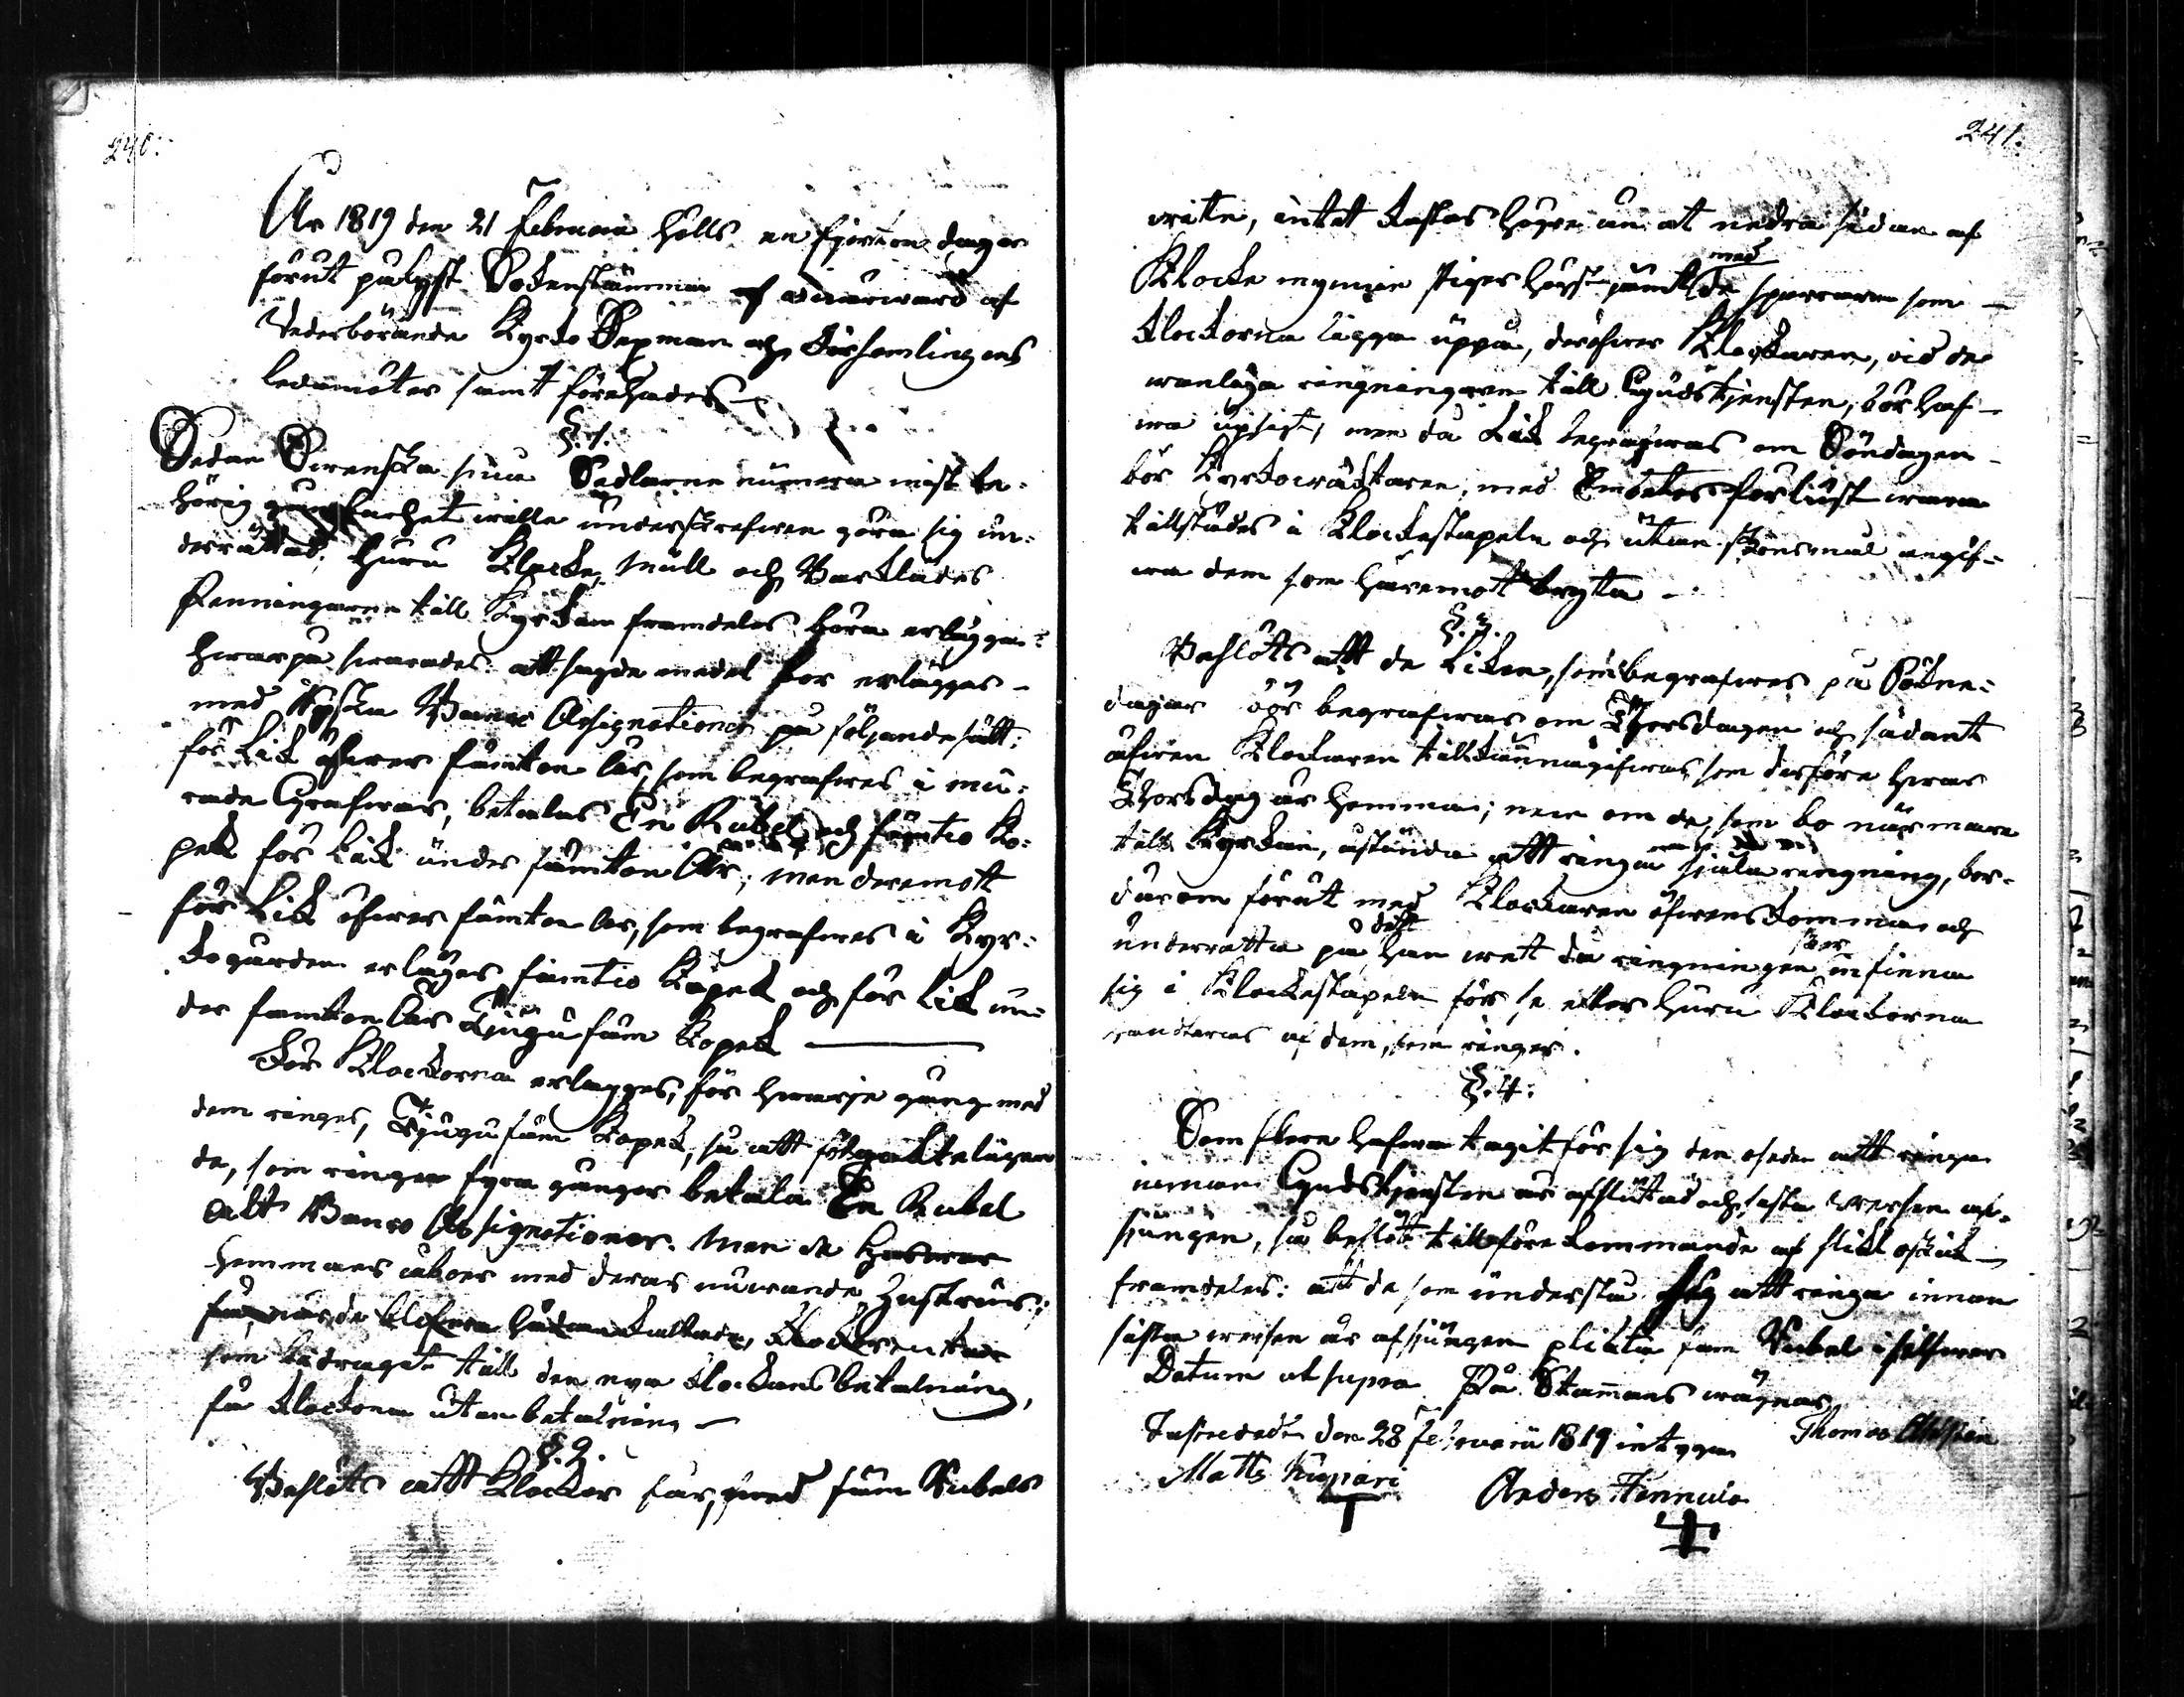 240.
År 1819 den 21 Februarii hölls en fjorton dagar
förut pålyst Sockenstämma af närwaro af
Vederbörande Kyrko Sexman och Församlingens
ledamöter samt förehades
§. 1.
Sedan Swenska sma Sedlarne numera mist be-
hörig gångbarhet wille underskrefwen göra sig un-
derrättad, huru Klocke, Mull och Barklädes
Penningarne till Kyrkan framdeles böra erläggas?
hwarpå swarades att sagde medel bör erläggas
med Ryska Banco Assignationer på följande sätt:
för Lik öfwer fämton år, som begrafwes i mu-
rade Grafwar, betalas En Rubel och fämtio Ko-
pek för Lik under fämton År; men deremot
för Lik öfwer fämton år, som begrafwes i Kyr-
kogården erlägges fämtio Kopek och för Lik un-
der fämton års Tjugu fäm Kopek
För Klockorna erlägges, för hwarje gång med
dem ringes, Tjugu fäm Kopek, så att
de, som ringer fyra gånger betala En Rubel
allt Banco Assignationer. Men de
Hemmans åboer med deras nuwarande Hustrur,
får när de blifwa
som bidragit till den nya klockans betalning,
få klockorna utan betalning
§. 2.
Beslöts att Klockor får, med fäm Rubels
241.
wite, intet kastas högre än at nedra sidan af
Klocke mynnin stiger högst jämt med de sparrarne som
klockorna ligga uppå, deröfwer Klockaren, wid de
wanliga ringningarne till Gudstjensten, bör haf-
wa upsigt; men då Lik begrafwas om Söndagen
bör Kyrkowäktaren, med Embetes förlust wara
tillstädes i Klockestapeln och utan skonsmål angif-
wa dem som häremot bryta
§. 3.
Beslöts att de Liken, som begrafwes på Sökne-
dagar bör begrafwas om Thorsdagen och sådant
äfwen Klockaren tillkännagifwas, som derföre hwar
Thorsdag är hemma; men om de, som bo närmare
till Kyrkan, åstunda att ringa själaringning, bör
därom förut med Klockaren öfwerenskomma och
underrätta på det han wet då ringningen sker infinna
sig i Klockestapeln för se efter huru Klockorna
handteras af dem, som ringer.
§. 4.
Som flere hafwa tagit för sig den oseden att ringa
innan Gudstjensten är afslutad och sista wersen af-
sjungen, så beslöts till förekommande af slikt oskick
framdeles: att de som understå sig att ringa innan
sista wersen är afsjungen plickta fäm Rubel i silfwer
Datum ut supra På Stämmans wägnar
Thomas
Justerades den 28 Februarii 1819 intygar
Matts Kuppari Anders Hannula